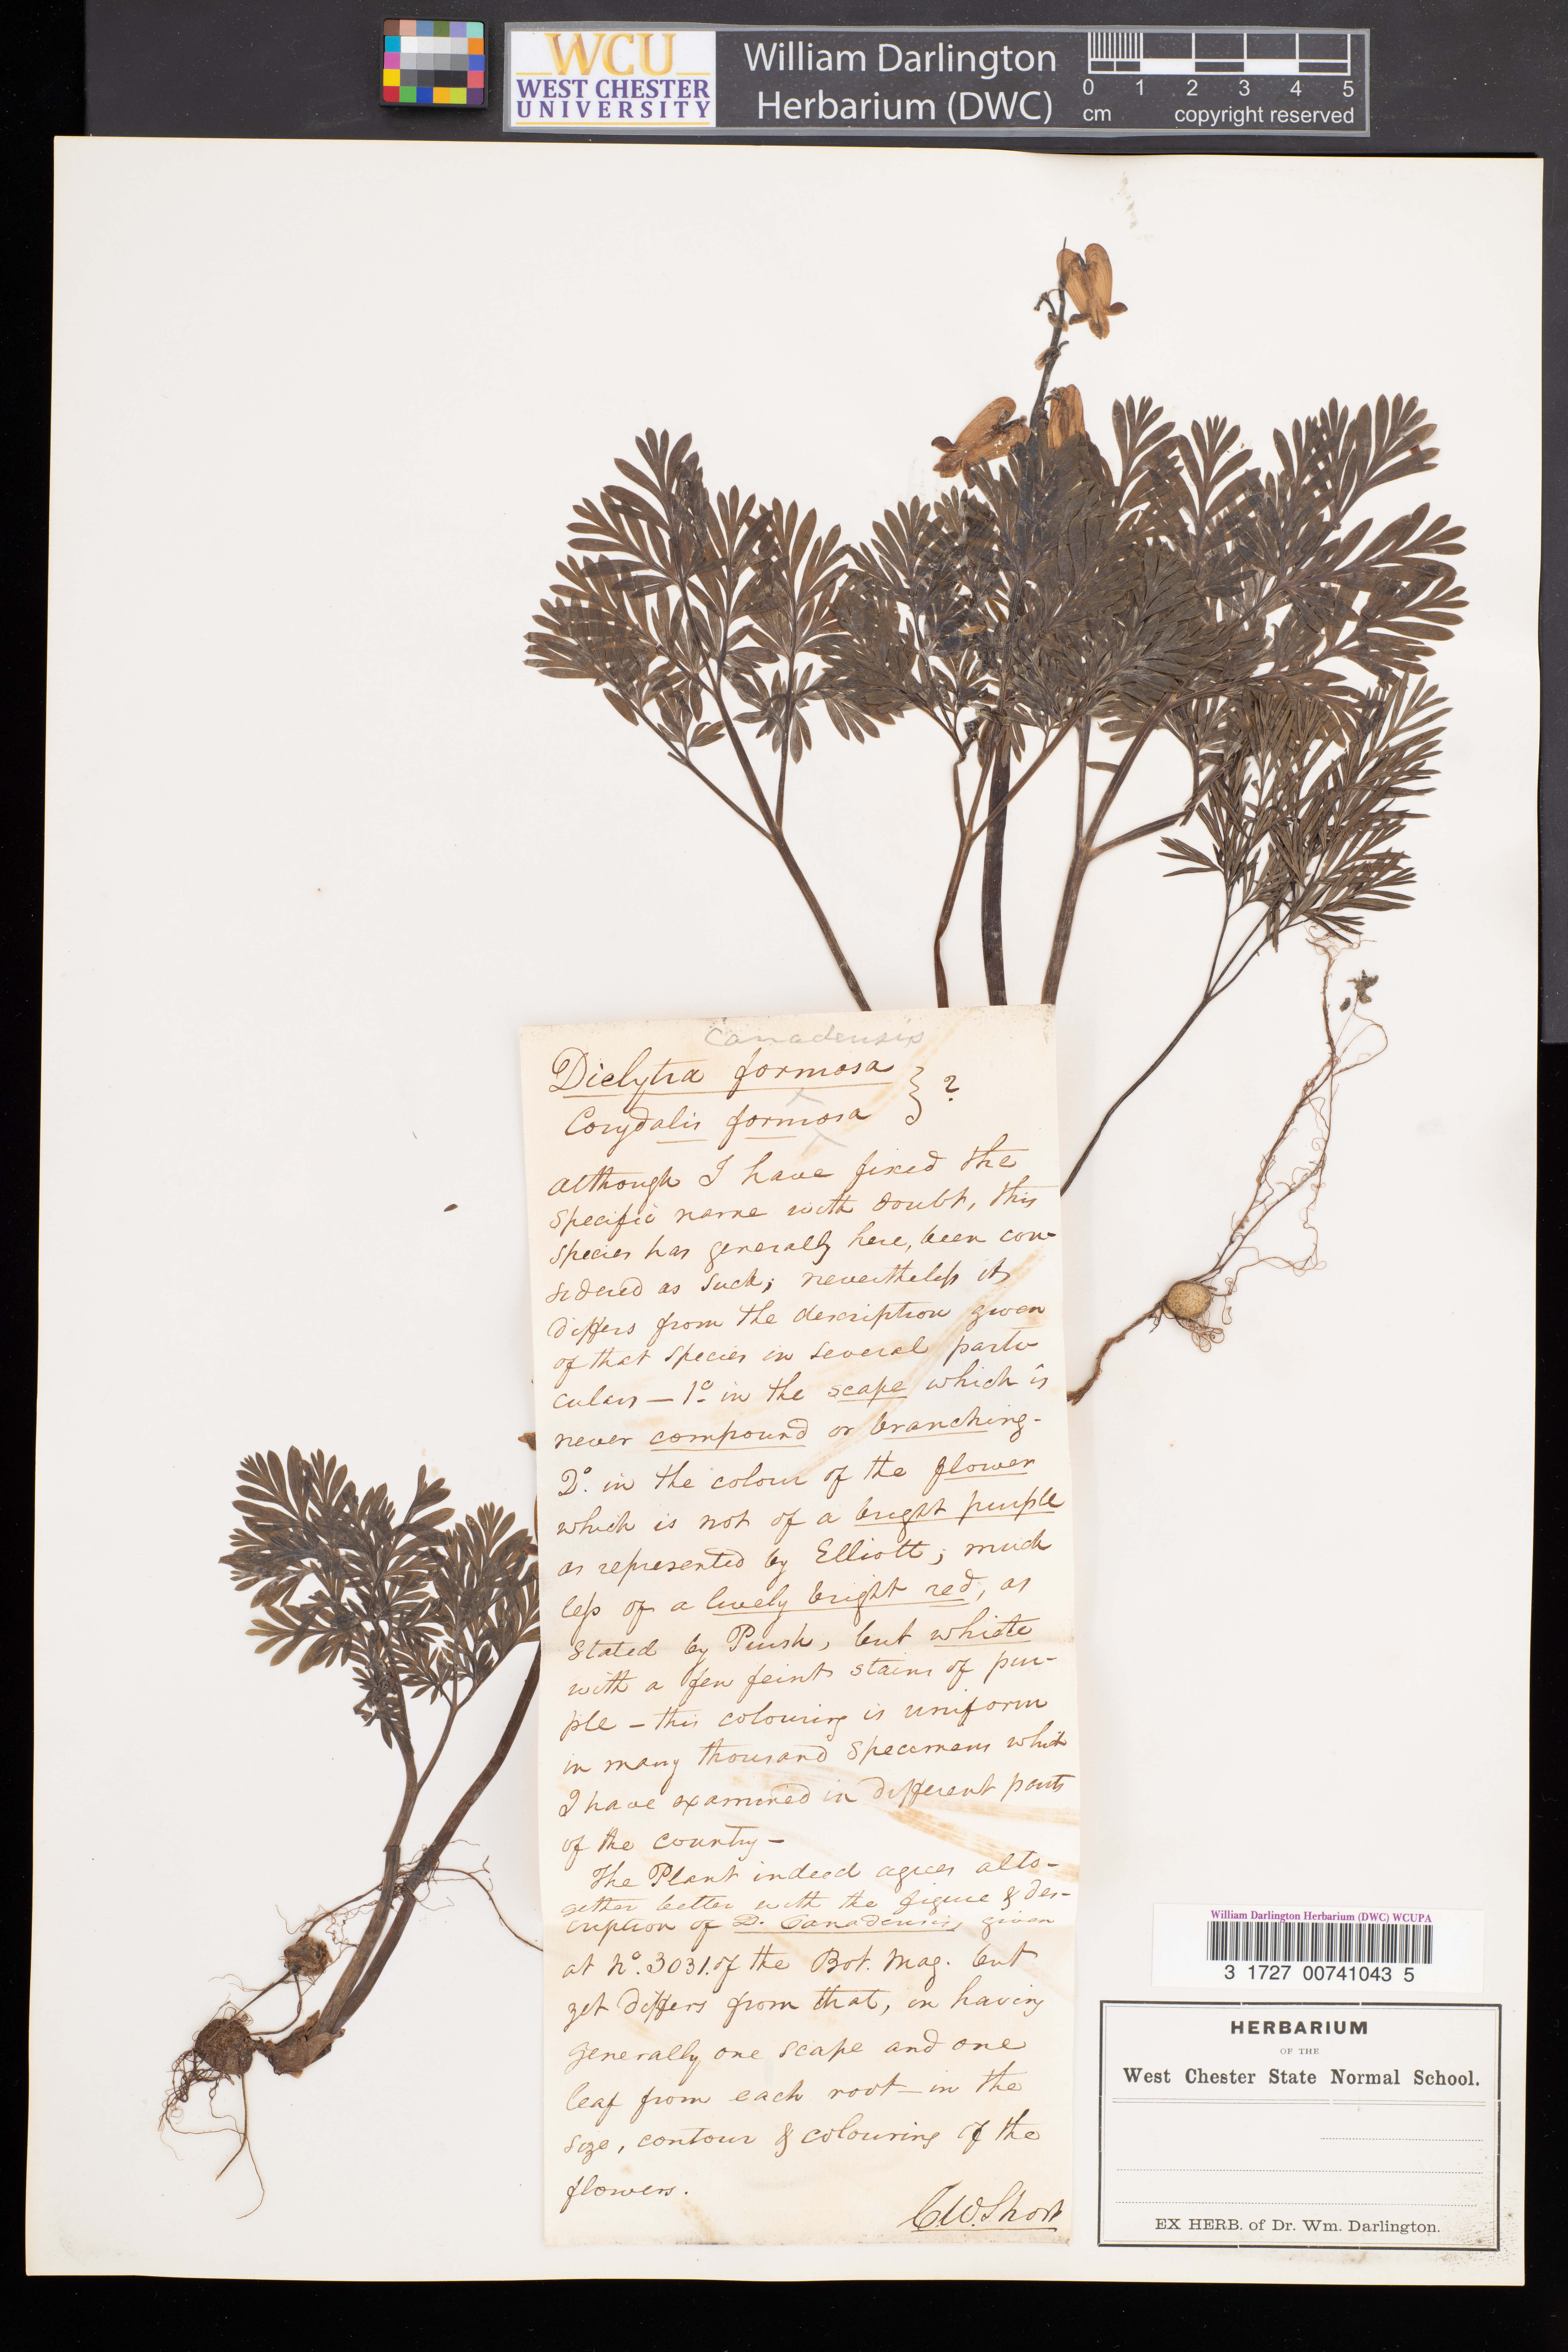 WCU
WEST CHESTER
UNIVERSITY
William Darlington
Herbarium (DWC)
0 1 2 3 4 5
cm copyright reserved
Canadensis
Diclytra formosa } ?
Corydalis formosa
although I have fixed the
specific name with doubt, this
species has generally here, been con-
sidered as such; nevertheless it
differs from the description given
of that species in several parti-
culars — 1º. in the scape which is
never compound or branching -
2º. in the colour of the flower
which is not of a bright purple
as represented by Elliott; much
less of a lively bright red, as
stated by Pursh, but whiite
with a few feint stains of pur-
ple — this colouring is uniform
in many thousand specimens which
I have examined in different parts
of the country —
The Plant indeed agrees alto-
gether better with the figure & des-
cription of D. Canadensis, given
at Nº. 3031. of the Bot. Mag. but
yet differs from that, in having
generally one scape and one
leaf from each root — in the
size, contour & colouring of the
flowers.
C.W. Short
William Darlington Herbarium (DWC) WCUPA
3 1727 00741043 5
HERBARIUM
OF THE
West Chester State Normal School.
EX HERB. of Dr. Wm. Darlington.